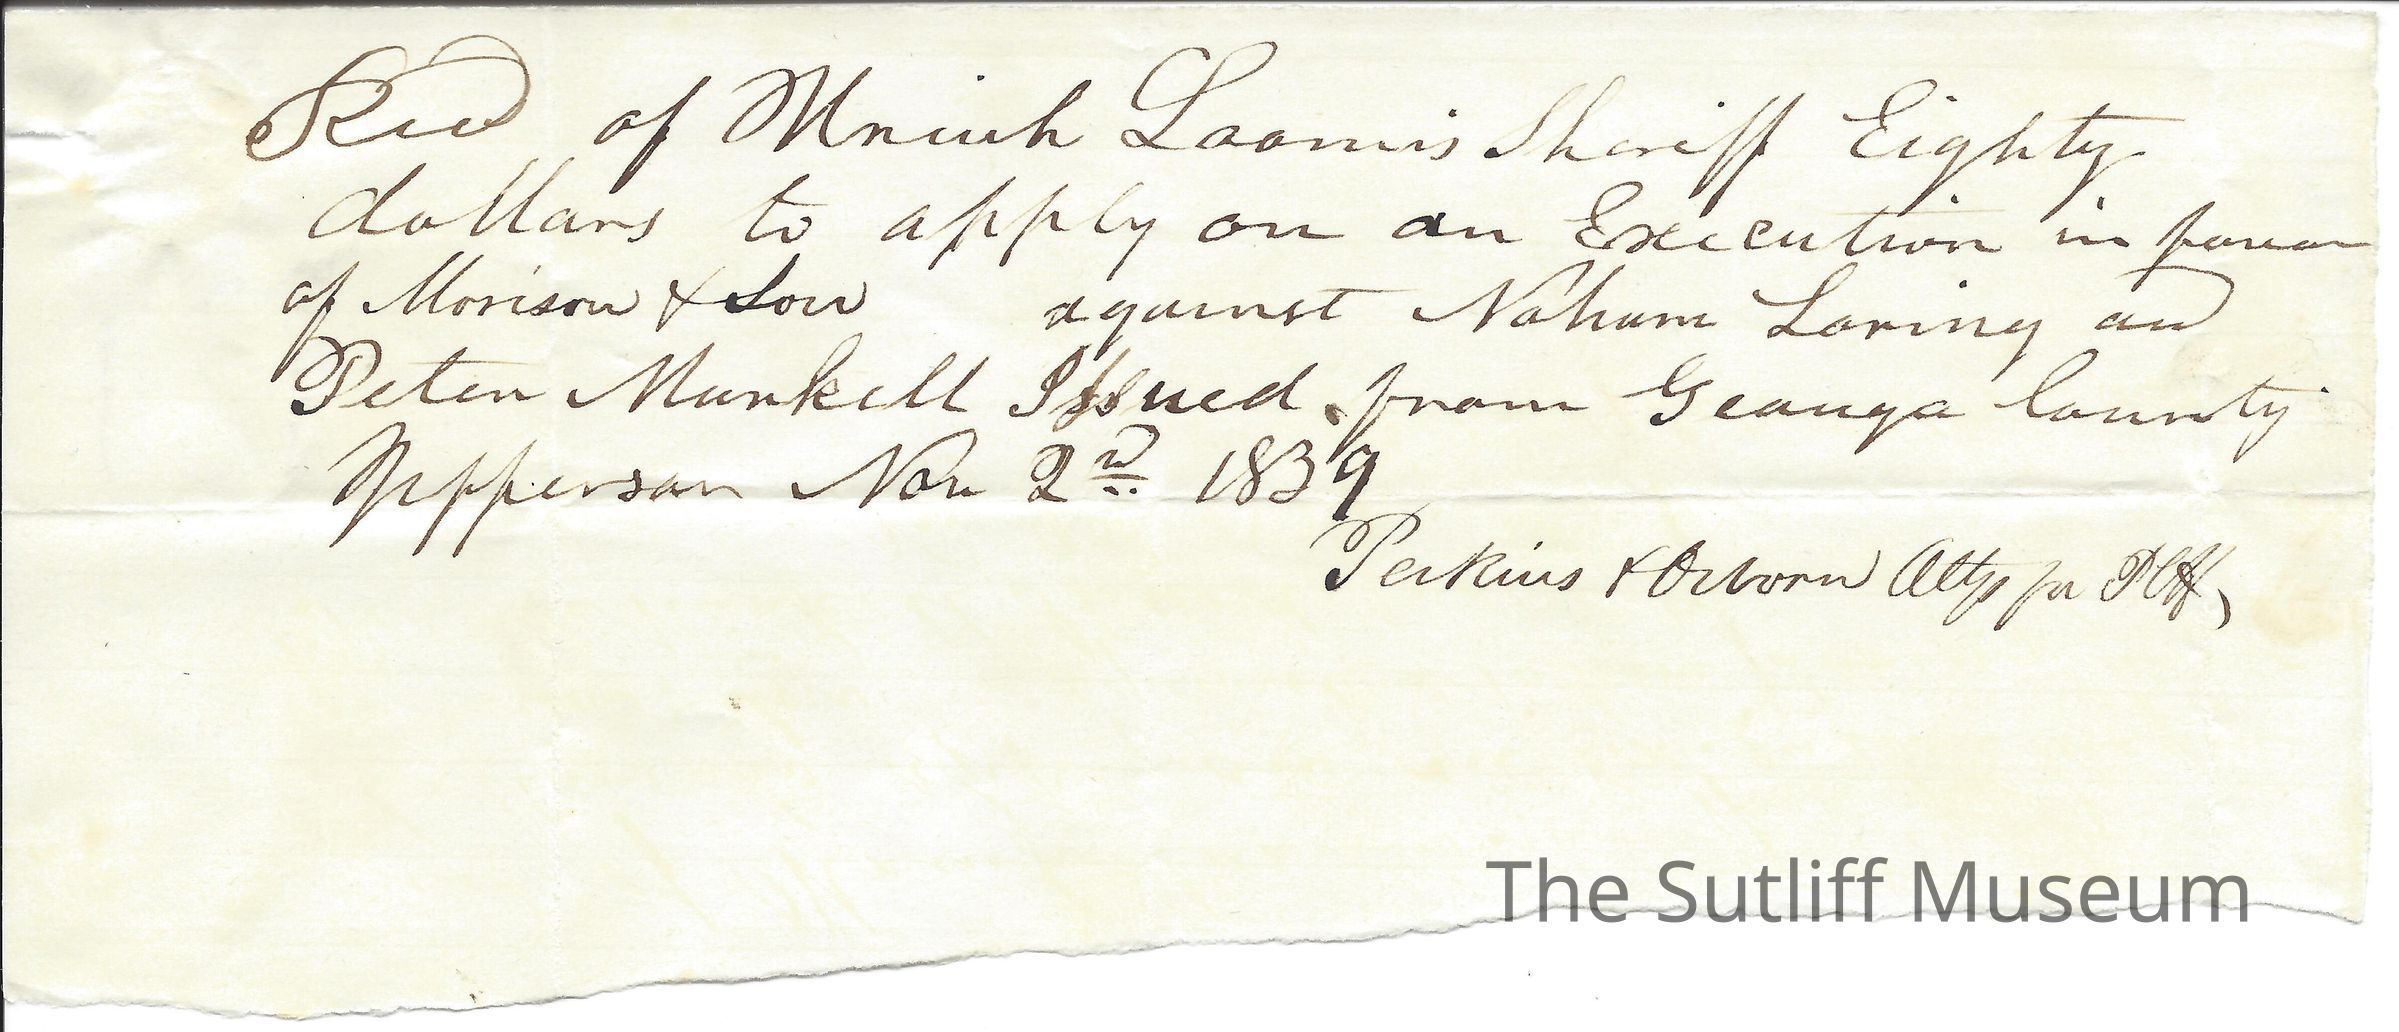 Recd of Uriah Loomis Sheriff Eighty
dollars to apply on an Execution in favour
of Morison & Son against Nahum Loring and
Peter Markell Issued from Geauga County
Jefferson Nov 2nd 1839
Perkins & Osborn Attys for Plff,
The Sutliff Museum